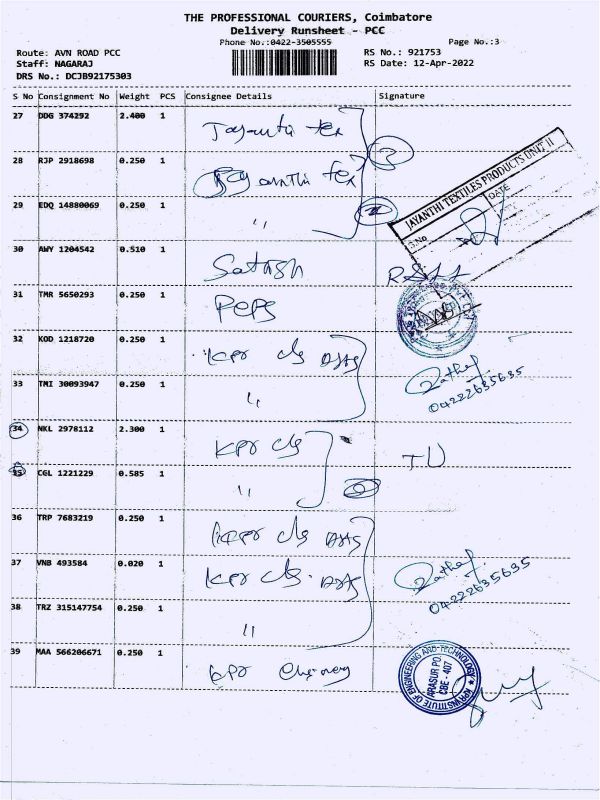 THE PROFESSIONAL COURIERS, Coimbatore
Delivery Runsheet - PCC
Phone No.:0422-3505555 Page No.:3
Route: AVN ROAD PCC RS No.: 921753
Staff: NAGARAJ RS Date: 12-Apr-2022
DRS No.: DCJB92175303
S No Consignment No Weight PCS Consignee Details Signature
27 DDG 374292 2.400 1 Jayanthi tex
28 RJP 2918698 0.250 1 Jayanthi tex
JAYANTHI TEXTILES PRODUCTS UNIT II
S.No DATE
29 EDQ 14880069 0.250 1 "
30 AWY 1204542 0.510 1 Satish
31 TMR 5650293 0.250 1 PEPS
32 KOD 1218720 0.250 1 Kpr clg
33 TMI 30093947 0.250 1 "
04222635635
34 NKL 2978112 2.300 1 Kpr clg
35 CGL 1221229 0.585 1 "
36 TRP 7683219 0.250 1 Kpr clg
37 VNB 493584 0.020 1 Kpr clg
04222635635
38 TRZ 315147754 0.250 1 "
39 MAA 566206671 0.250 1 kpr
KPR INSTITUTE OF ENGINEERING AND TECHNOLOGY
ARASUR PO.
CBE - 407